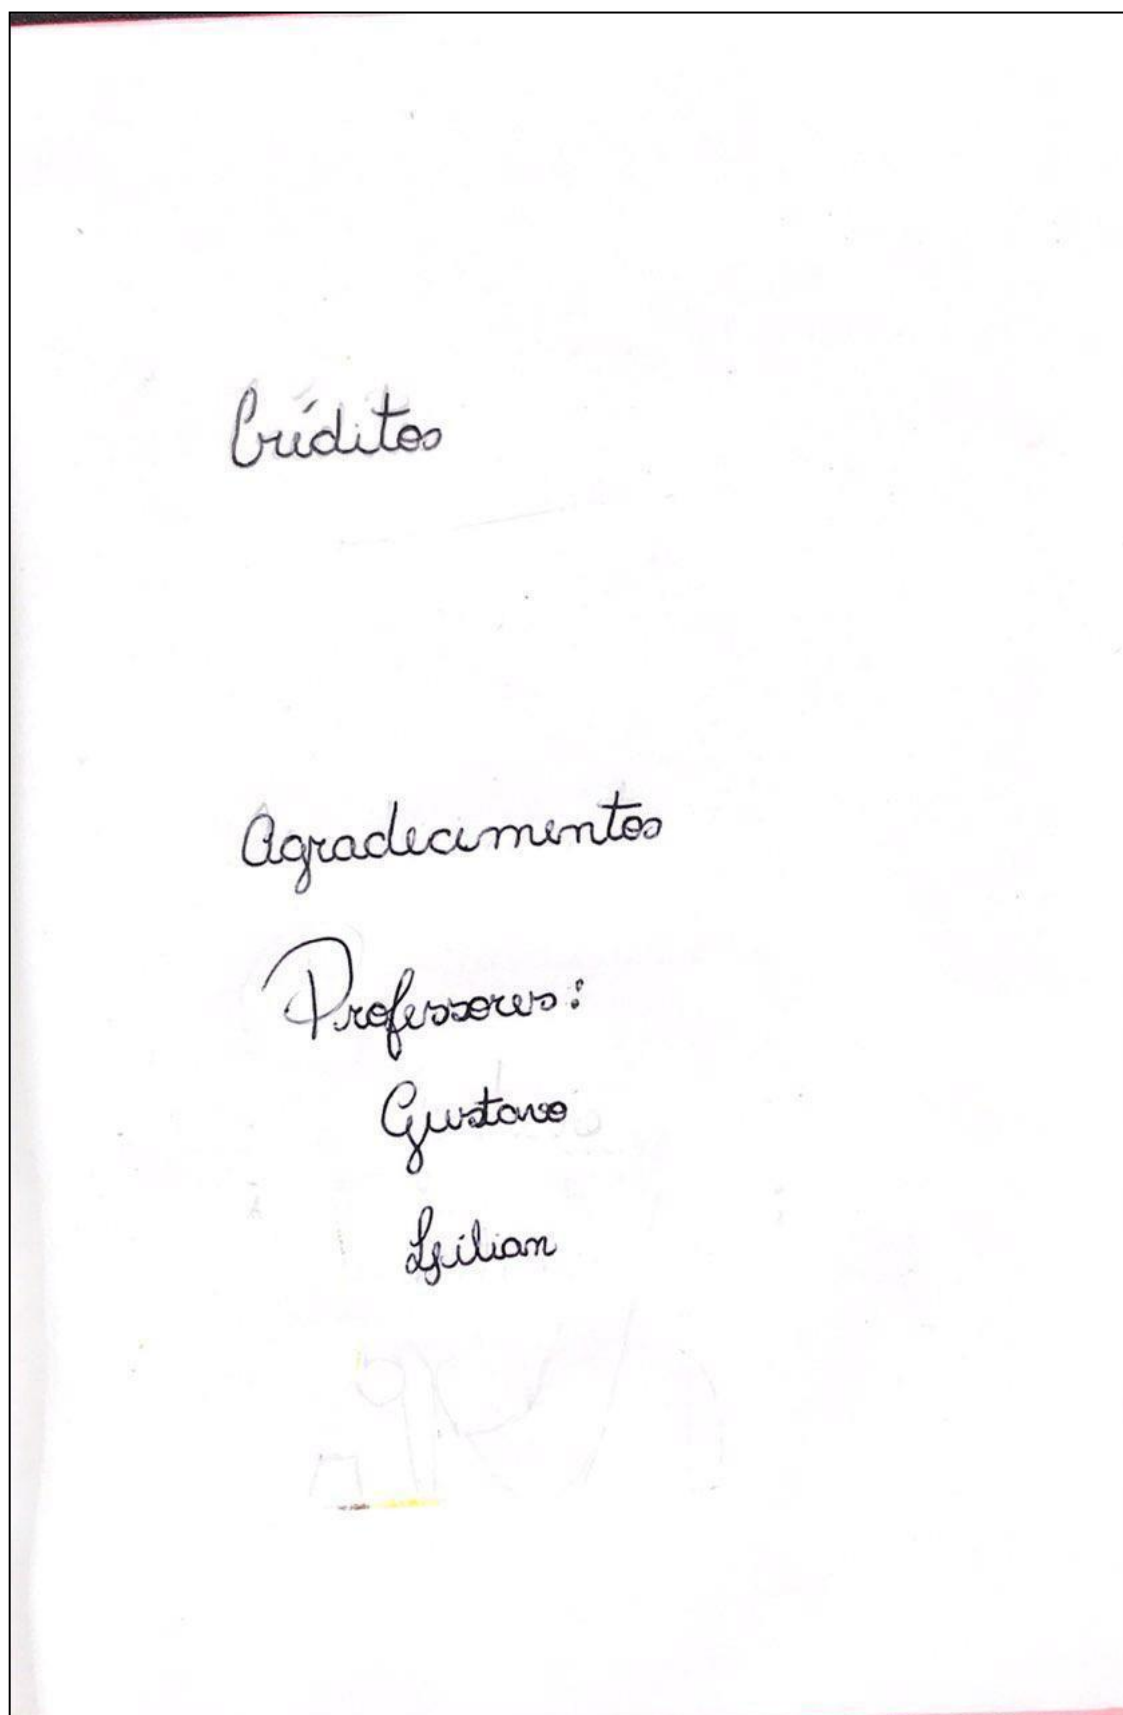 Créditos
Agradecimentos
Professores:
Gustavo
Lilian